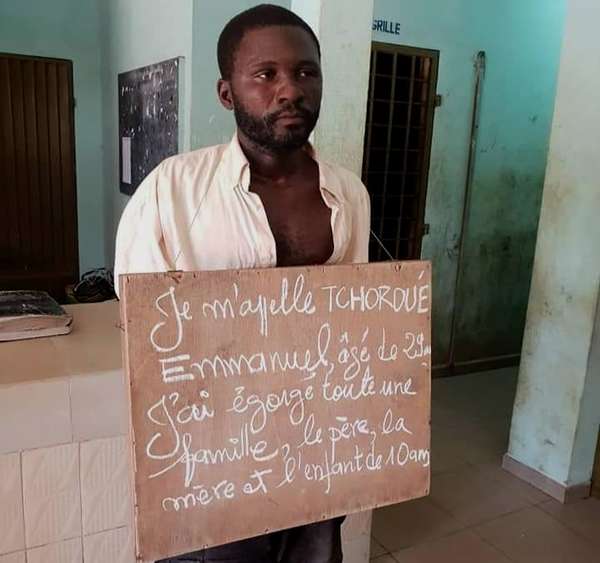 GRILLE
Je m'appelle TCHORDUÉ
Emmanuel, âgé de 29
J'ai égorgé toute une
famille, le père, la
mère et l'enfant de 10ans